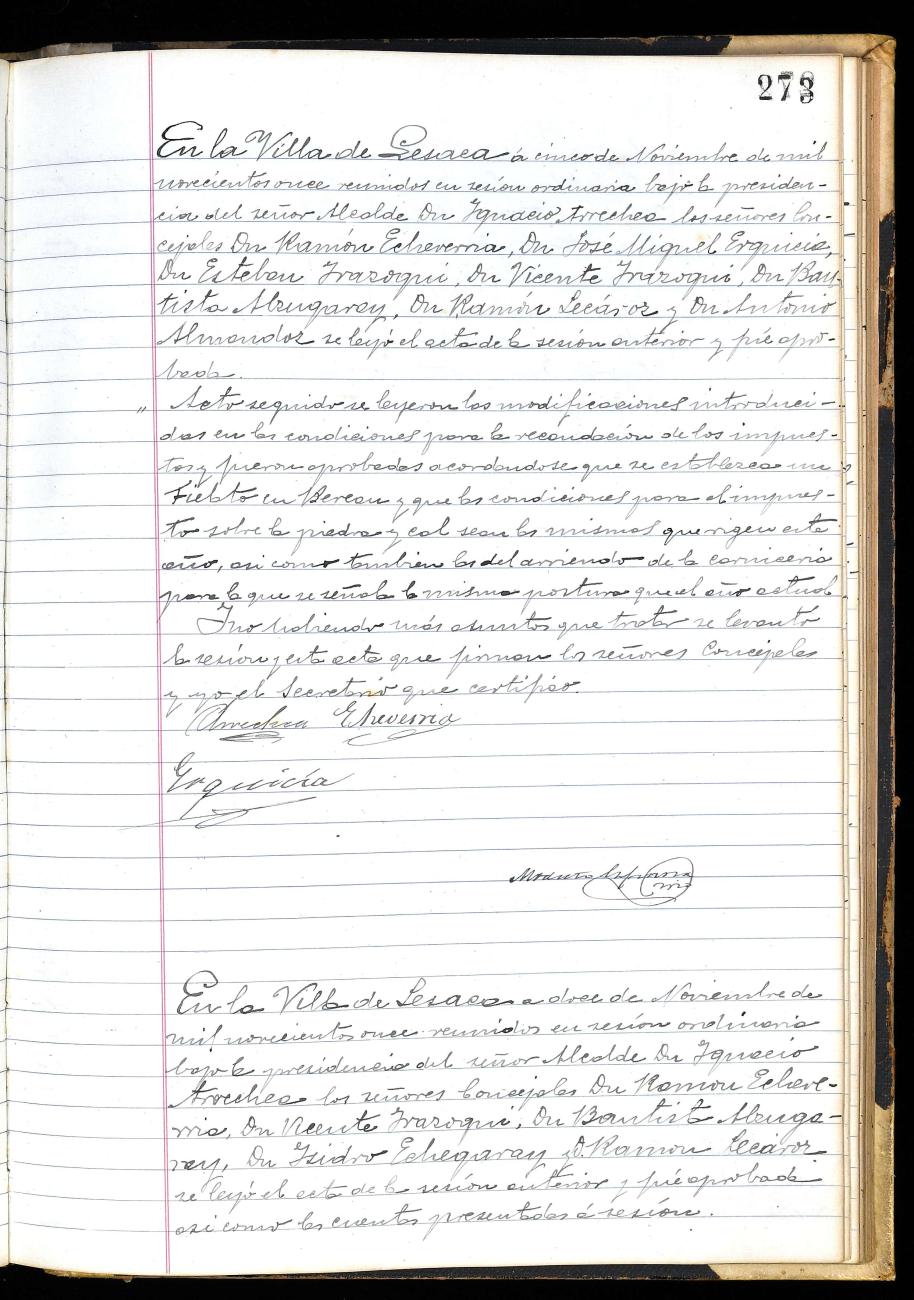 273
En la Villa de Lesaca á cinco de Noviembre de mil
novecientos once reunidos en sesión ordinaria bajo la presiden-
cia del señor Alcalde Dn Ignacio Arrechea los señores Con-
cejales Dn Ramón Echeverria, Dn José Miguel Erquicia,
Dn Esteban Irazoqui, Dn Vicente Irazoqui, Dn Bau-
tista Alzugaray, Dn Ramón Lecároz y Dn Antonio
Almandoz se leyó el acta de la sesión anterior y fué apro-
bada.
" Acto seguido se leyeron las modificaciones introduci-
das en las condiciones para la recaudación de los impues-
tos y fueron aprobadas acordandose que se establezca un
Fielato en Berean y que las condiciones para el impues-
to sobre la piedra y cal sean las mismas que rigen este
año, asi como tambien las del arriendo de la carniceria
para la que se señala la misma postura que el año actual
Y no habiendo más asuntos que tratar se levantó
la sesión y esta acta que firman los señores Concejales
y yo el Secretario que certifico.
Arrechea Echeverria
Erquicia
En la Villa de Lesaca a doce de Noviembre de
mil novecientos once reunidos en sesión ordinaria
bajo la presidencia del señor Alcalde Dn Ignacio
Arrechea los señores Concejales Dn Ramon Echeve-
rria, Dn Vicente Irazoqui, Dn Bautista Alzuga-
ray, Dn Isidro Echegaray y D. Ramon Lecároz
se leyó el acta de la sesión anterior y fué aprobada
asi como las cuentas presentadas á sesión.